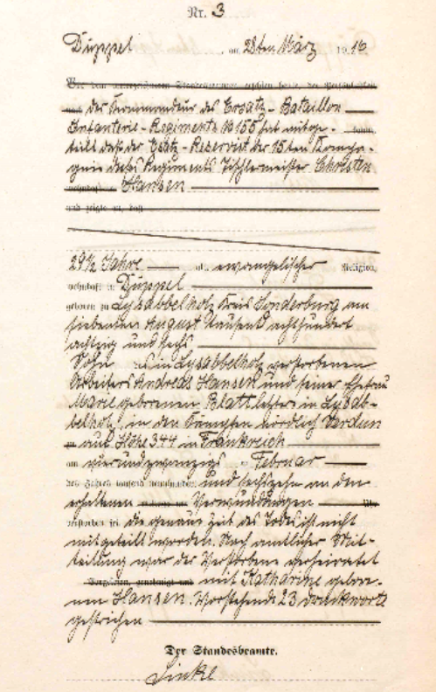 Nr. 3
Düppel, am 28ten März 1916
Vor dem unterzeichneten Standesbeamten erschien heute, der Persönlichkeit
der Kommandeur des Ersatz-Bataillon
Infanterie-Regiments No 155 hat mitge-
teilt daß der Ersatz-Reservist der 15ten Kompag-
nie dieses Regiments Tischlermeister Christen
wohnhaft Hansen
und zeigte an, daß
29 1/2 Jahre alt, evangelischer Religion,
wohnhaft in Düppel
geboren zu Lysabbelholz Kreis Sonderburg am
siebenten August tausend achthundert
achtzig und sechs
Sohn in Lysabbelholz verstorbenen
Arbeiters Andreas Hansen und seiner Ehefrau
Marie geborenen Blatt, letztere in Lysab-
belholz, in den Kämpfen nördlich Verdun
auf Höhe 344 in Frankreich
am vierundzwanzigs Februar
des Jahres tausend neunhundert und sechzehn an den
erhaltenen Verwundungen
verstorben sei, die genaue Zeit des Todes ist nicht
mitgeteilt worden. Nach amtlicher Mit-
teilung war der Verstorbene verheiratet
Vorgelesen, genehmigt und mit Katharine gebore-
nen Hansen. Vorstehende 23 Druckworte
gestrichen
Der Standesbeamte.
Linke